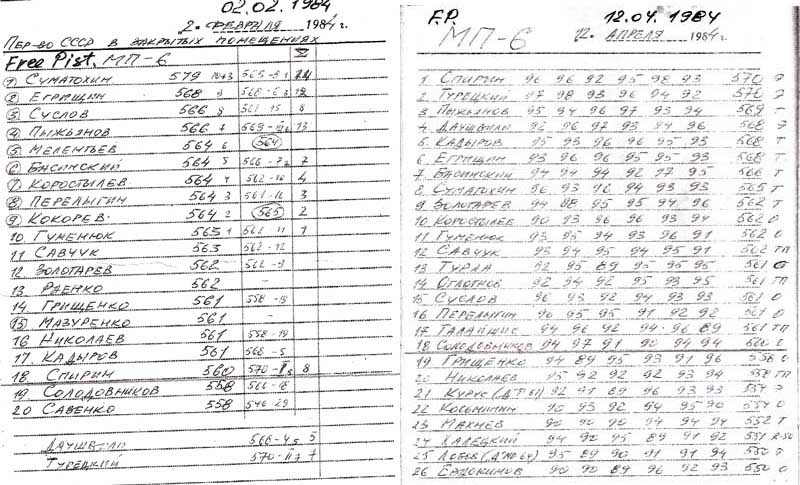 02.02.1984
2. ФЕВРАЛЯ 1984 г.
ПЕР-ВО СССР В ЗАКРЫТЫХ ПОМЕЩЕНИЯХ
Free Pist. МП-6
1 СУМАТОХИН 579 10+3 565-8
2 ЕГРИЩИН 568 9 568-6
3 СУСЛОВ 566 8 561-15 8
4 ПЫЖЬЯНОВ 566 7 569- 13
5 МЕЛЕНТЬЕВ 564 6 564
6 БАСИНСКИЙ 564 5 566-7 7
7 КОРОСТЫЛЕВ 564 4 562-10 4
8 ПЕРЕЛЫГИН 564 3 561-16 3
9 КОКОРЕВ 564 2 565 2
10 ГУМЕНЮК 563 1 562-11 1
11 САВЧУК 563 562-12
12 ЗОЛОТАРЕВ 562 562-9
13 РАЕНКО 562 -
14 ГРИЩЕНКО 561 558-19
15 МАЗУРЕНКО 561 -
16 НИКОЛАЕВ 561 558-19
17 КАДЫРОВ 561 568-5
18 СПИРИН 560 570- 8
19 СОЛОДОВНИКОВ 558 560-18
20 САВЕНКО 558 546-29
ДАУШВИЛИ 568-4 5
ТУРЕЦКИЙ 570-II 7
F.P. 12.04.1984
МП-6 12. АПРЕЛЯ 1984 г.
1 СПИРИН 96 96 92 95 98 93 570 Э
2 ТУРЕЦКИЙ 97 98 93 96 94 92 570 Э
3 ПЫЖЬЯНОВ 95 94 96 97 93 94 569 Т
4 ДАУШВИЛИ 92 96 97 93 94 96 568 Э
5 КАДЫРОВ 95 93 96 96 95 93 568 Т
6 ЕГРИЩИН 93 96 96 95 95 93 568 Т
7 БАСИНСКИЙ 94 94 94 92 97 95 566 Т
8 СУМАТОХИН 96 93 96 94 93 93 565 Т
9 ЗОЛОТАРЕВ 94 88 95 95 94 96 562 Т
10 КОРОСТЫЛЕВ 90 93 96 96 93 94 562 О
11 ГУМЕНЮК 93 95 94 93 96 91 562 О
12 САВЧУК 93 94 95 94 95 91 562 ТП
13 ТУРЛА 92 95 89 95 95 95 561 О
14 ОГЛОБЛОВ 92 94 92 95 93 95 561 ТП
15 СУСЛОВ 96 93 92 94 93 93 561 О
16 ПЕРЕЛЫГИН 96 95 95 91 92 92 561 О
17 ТАЛАЙШИС 94 96 92 94 96 89 561 ТП
18 СОЛОДОВНИКОВ 94 97 91 90 94 94 560
19 ГРИЩЕНКО 94 89 95 93 91 96 558 О
20 НИКОЛАЕВ 95 92 92 92 93 94 558 ТП
21 КУРУС 92 91 89 96 93 93 554 Э
22 КОСЬМИТИН 90 93 92 94 95 90 554 О
23 МАХНЕВ 90 90 90 94 94 94 552 Т
24 ХАЛЕЦКИЙ 94 90 95 89 91 92 551
25 ЛОБОВ 95 89 90 91 91 94 550 Э
26 ЕВДОКИМОВ 90 90 89 96 92 93 550 О